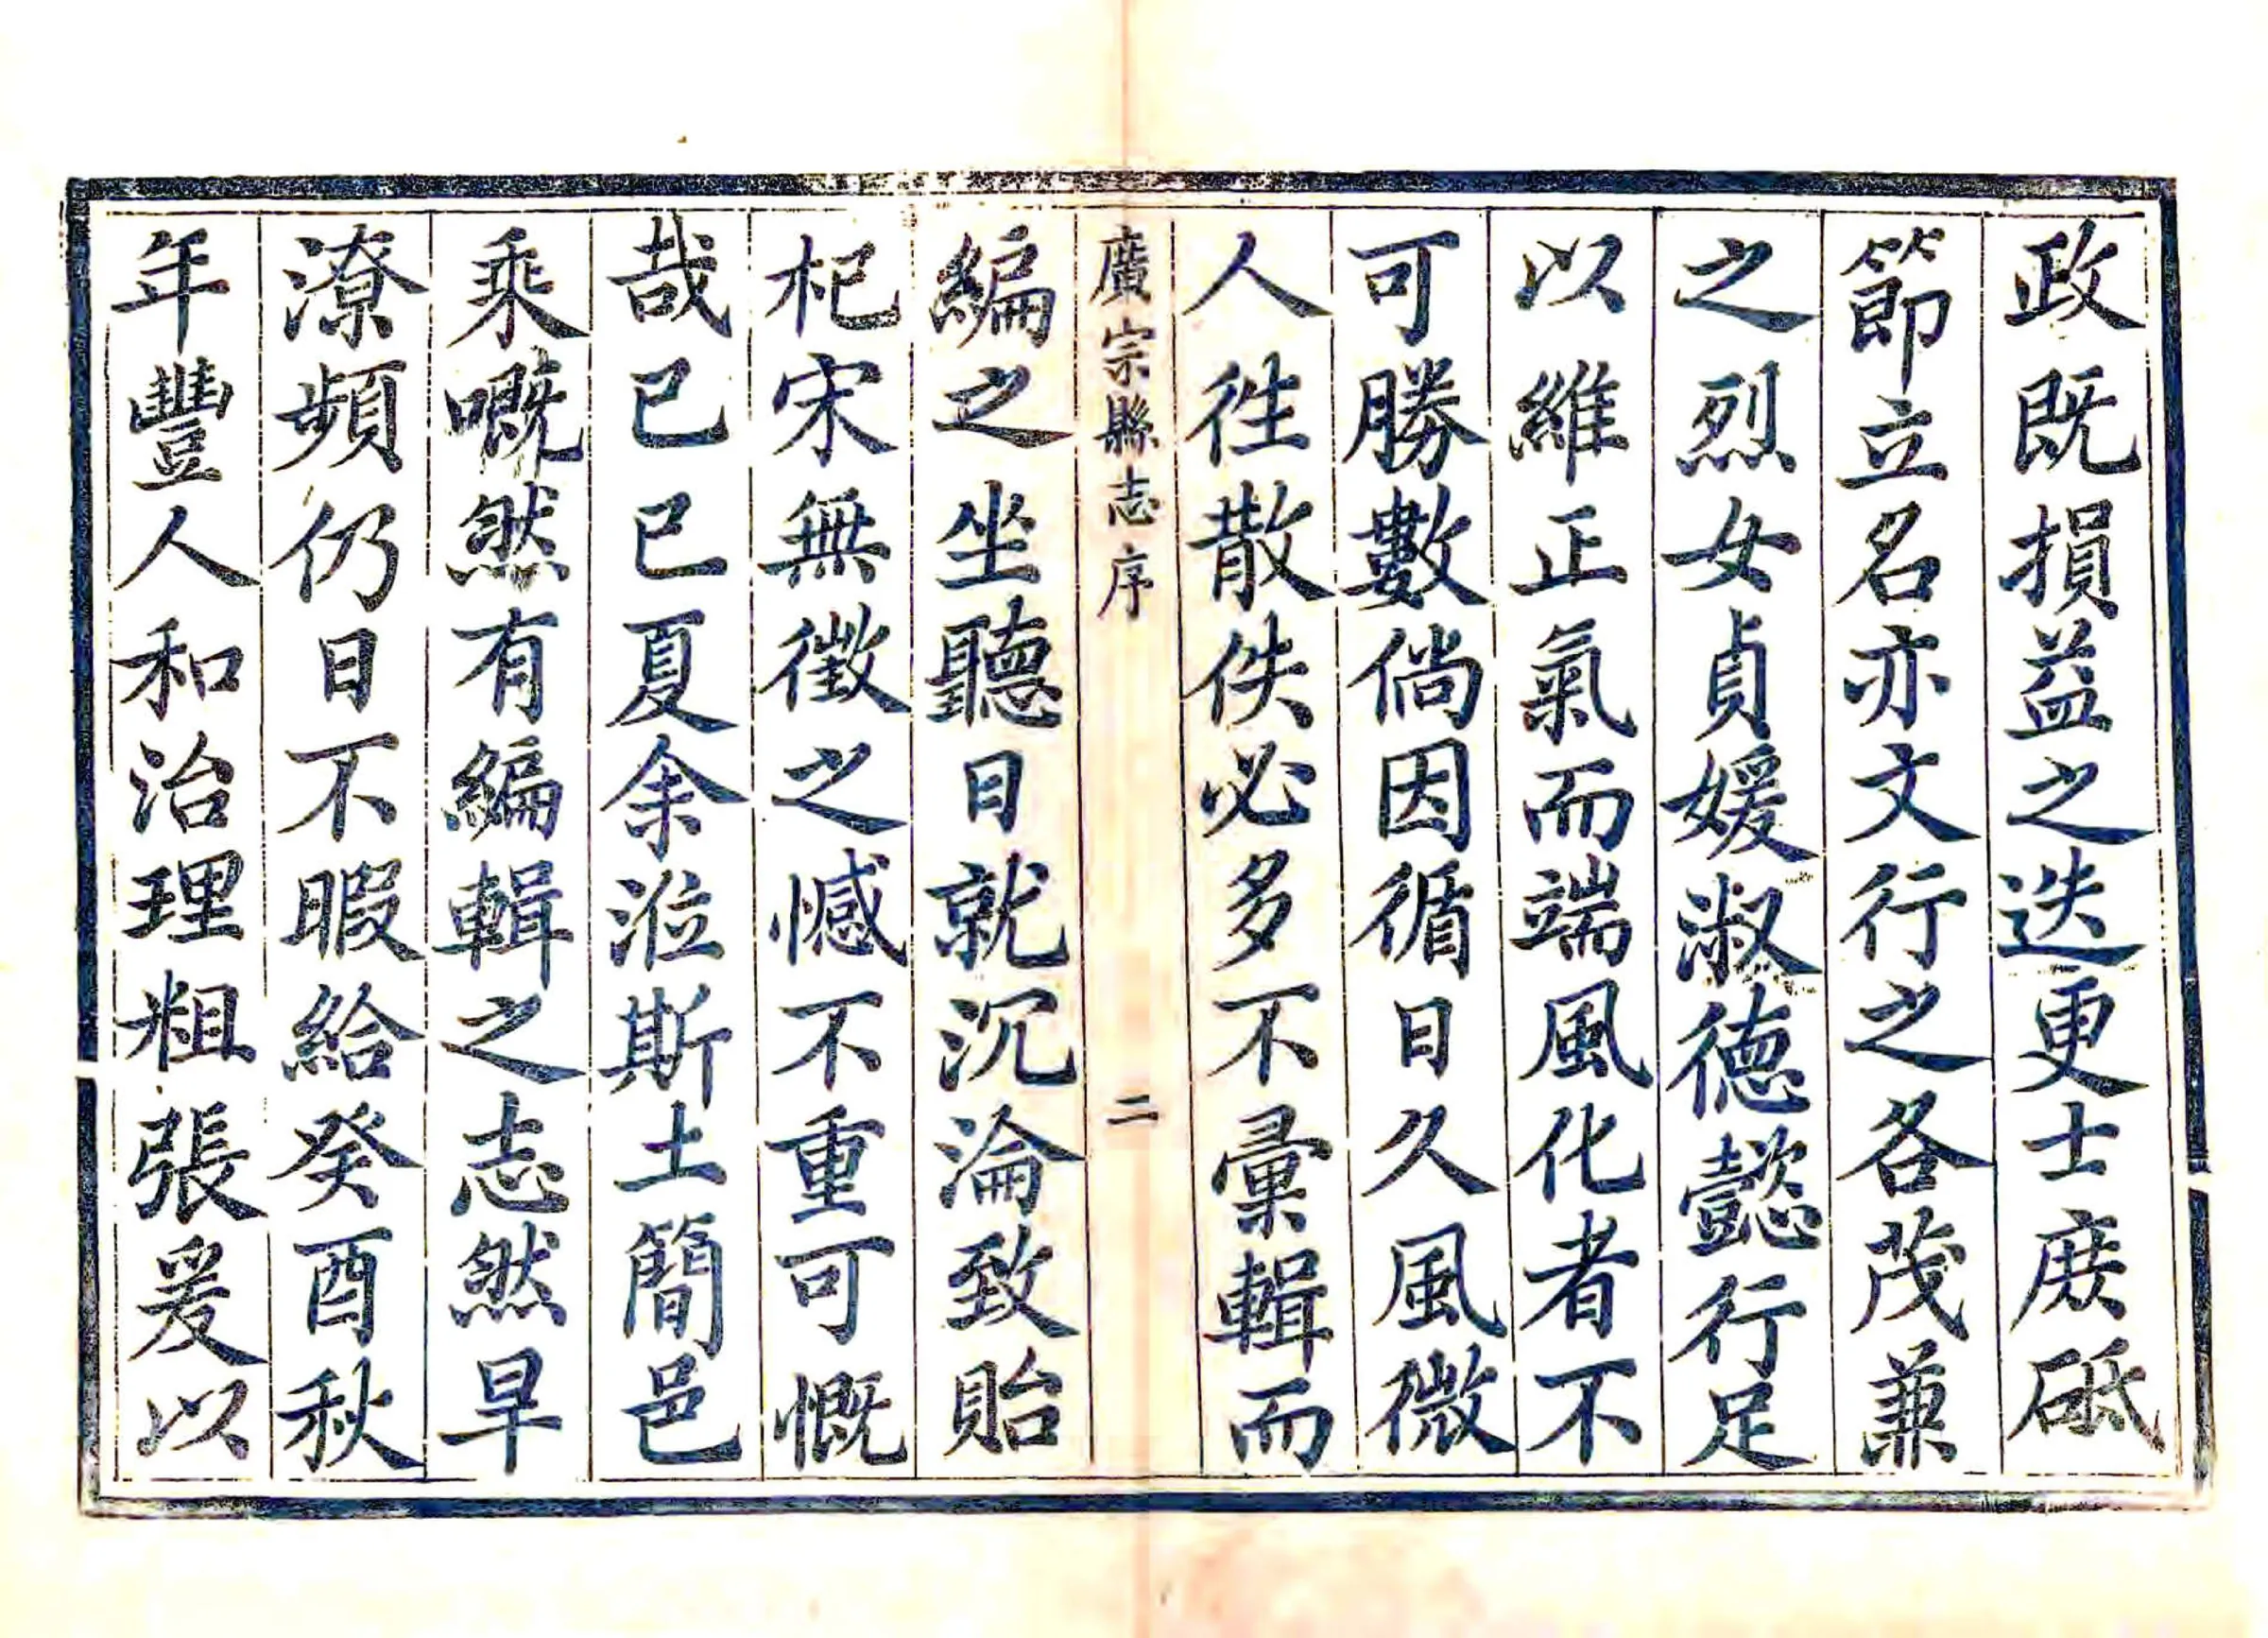 政既損益之迭更士庻砥
節立名亦文行之各茂兼
之烈女貞媛淑德懿行足
以維正氣而端風化者不
可勝數倘因循日久風微
人徃散佚必多不彙輯而
廣宗縣志序 二
編之坐聽日就沉淪致貽
杞宋無徵之憾不重可慨
哉已已夏余涖斯土簡邑
乘嘅然有編輯之志然旱
潦頻仍日不暇給癸酉秋
年豐人和治理粗張爰以